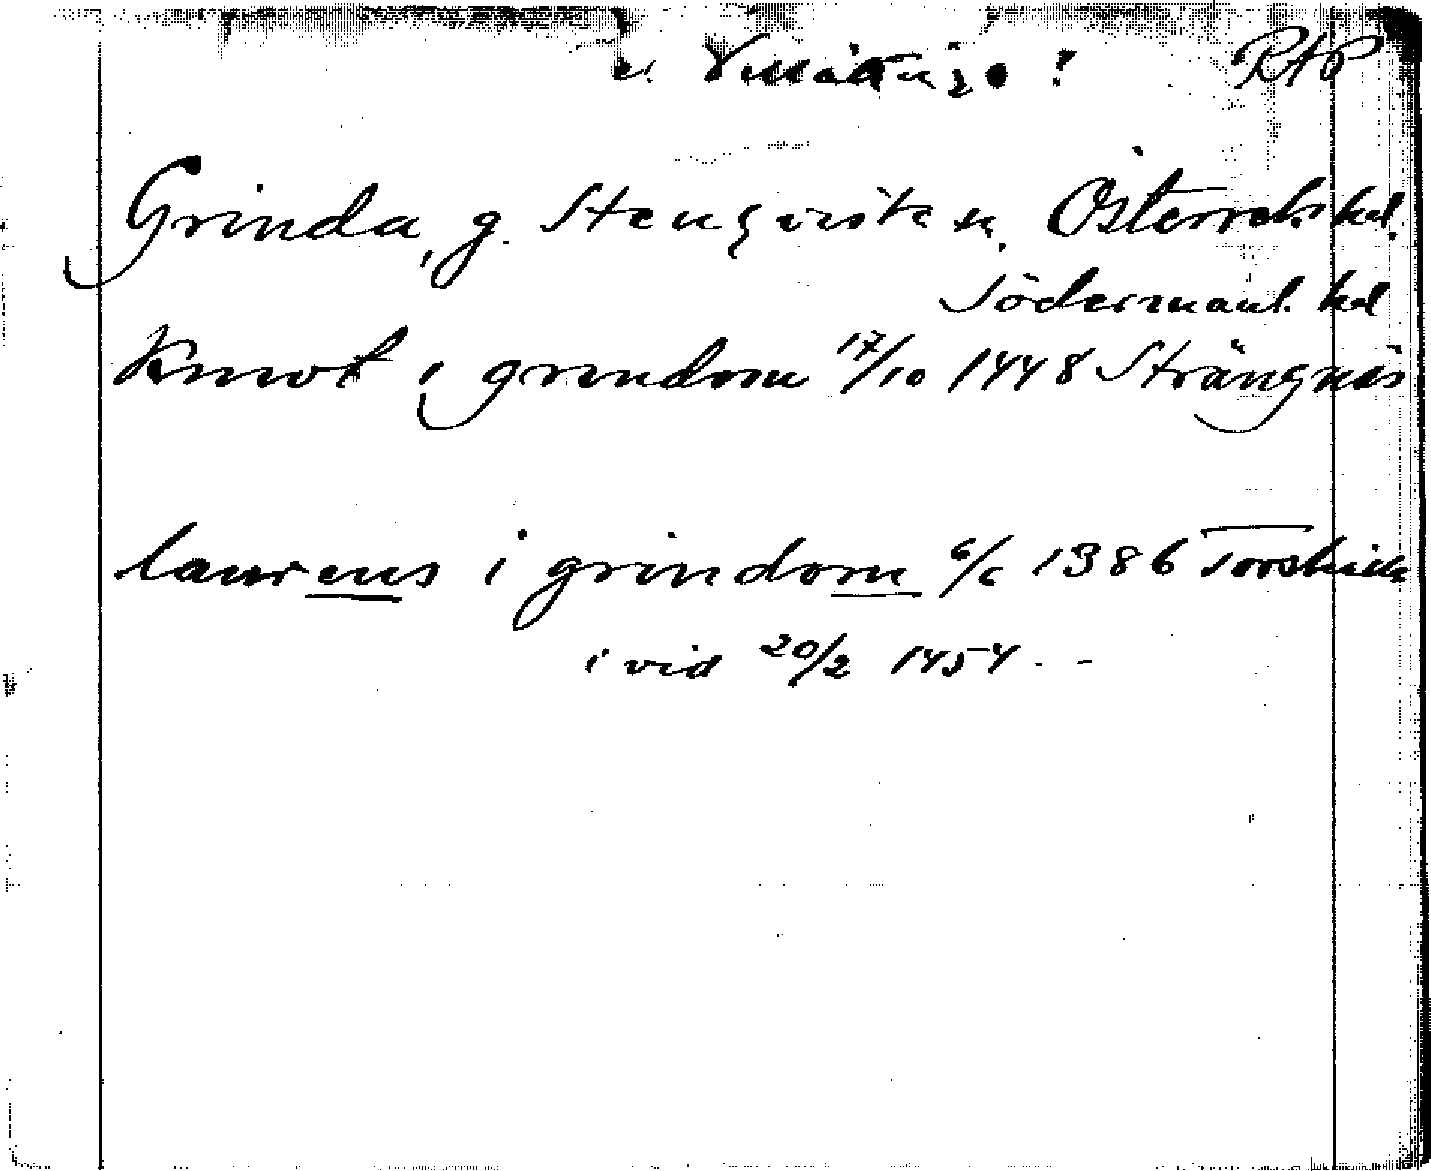 el. Villåttinge? RAP
Grinda, g. Stenqvista sn. Österrek. hd.
Södermanl. hd
Knwt i grindom 17/10 1448 Strängnäs
laurens i grindom 6/6 1386 Torshälle
i vid 20/2 1454 - -